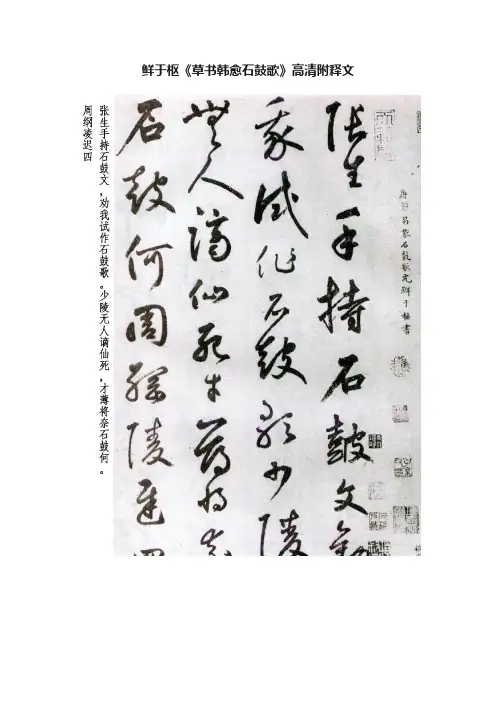 鲜于枢《草书韩愈石鼓歌》高清附释文
唐韓昌黎石鼓歌元鮮于樞書
張生手持石鼓文勸
我試作石鼓歌少陵
無人謫仙死才薄將奈
石鼓何周綱陵遲四
张生手持石鼓文,劝我试作石鼓歌。少陵无人谪仙死,才薄将奈石鼓何。
周纲凌迟四